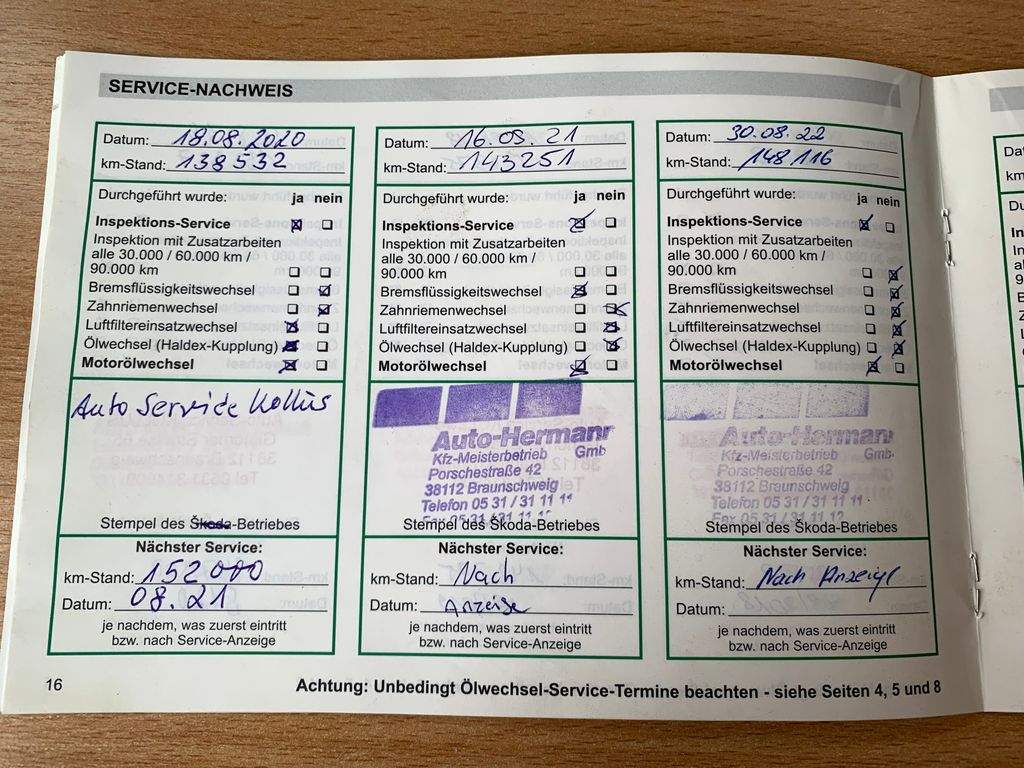 SERVICE-NACHWEIS
Datum: 18.08.2020
km-Stand: 138532
Durchgeführt wurde: ja nein
Inspektions-Service
Inspektion mit Zusatzarbeiten
alle 30.000 / 60.000 km /
90.000 km
Bremsflüssigkeitswechsel
Zahnriemenwechsel
Luftfiltereinsatzwechsel
Ölwechsel (Haldex-Kupplung)
Motorölwechsel
Auto Service Kollus
Stempel des Škoda-Betriebes
Nächster Service:
km-Stand: 152000
Datum: 08.21
je nachdem, was zuerst eintritt
bzw. nach Service-Anzeige
Datum: 16.09.21
km-Stand: 143251
Durchgeführt wurde: ja nein
Inspektions-Service
Inspektion mit Zusatzarbeiten
alle 30.000 / 60.000 km /
90.000 km
Bremsflüssigkeitswechsel
Zahnriemenwechsel
Luftfiltereinsatzwechsel
Ölwechsel (Haldex-Kupplung)
Motorölwechsel
Auto-Hermann
Kfz-Meisterbetrieb Gmb
Porschestraße 42
38112 Braunschweig
Telefon 05 31 / 31 11 11
Fax 05 31 / 31 11 12
Stempel des Škoda-Betriebes
Nächster Service:
km-Stand: Nach
Datum: Anzeige
je nachdem, was zuerst eintritt
bzw. nach Service-Anzeige
Datum: 30.08.22
km-Stand: 148116
Durchgeführt wurde: ja nein
Inspektions-Service
Inspektion mit Zusatzarbeiten
alle 30.000 / 60.000 km /
90.000 km
Bremsflüssigkeitswechsel
Zahnriemenwechsel
Luftfiltereinsatzwechsel
Ölwechsel (Haldex-Kupplung)
Motorölwechsel
Auto-Herman
Kfz-Meisterbetrieb Gmb
Porschestraße 42
38112 Braunschweig
Telefon 05 31 / 31 11 11
Fax 05 31 / 31 11 12
Stempel des Škoda-Betriebes
Nächster Service:
km-Stand: Nach Anzeige
Datum:
je nachdem, was zuerst eintritt
bzw. nach Service-Anzeige
16
Achtung: Unbedingt Ölwechsel-Service-Termine beachten - siehe Seiten 4, 5 und 8